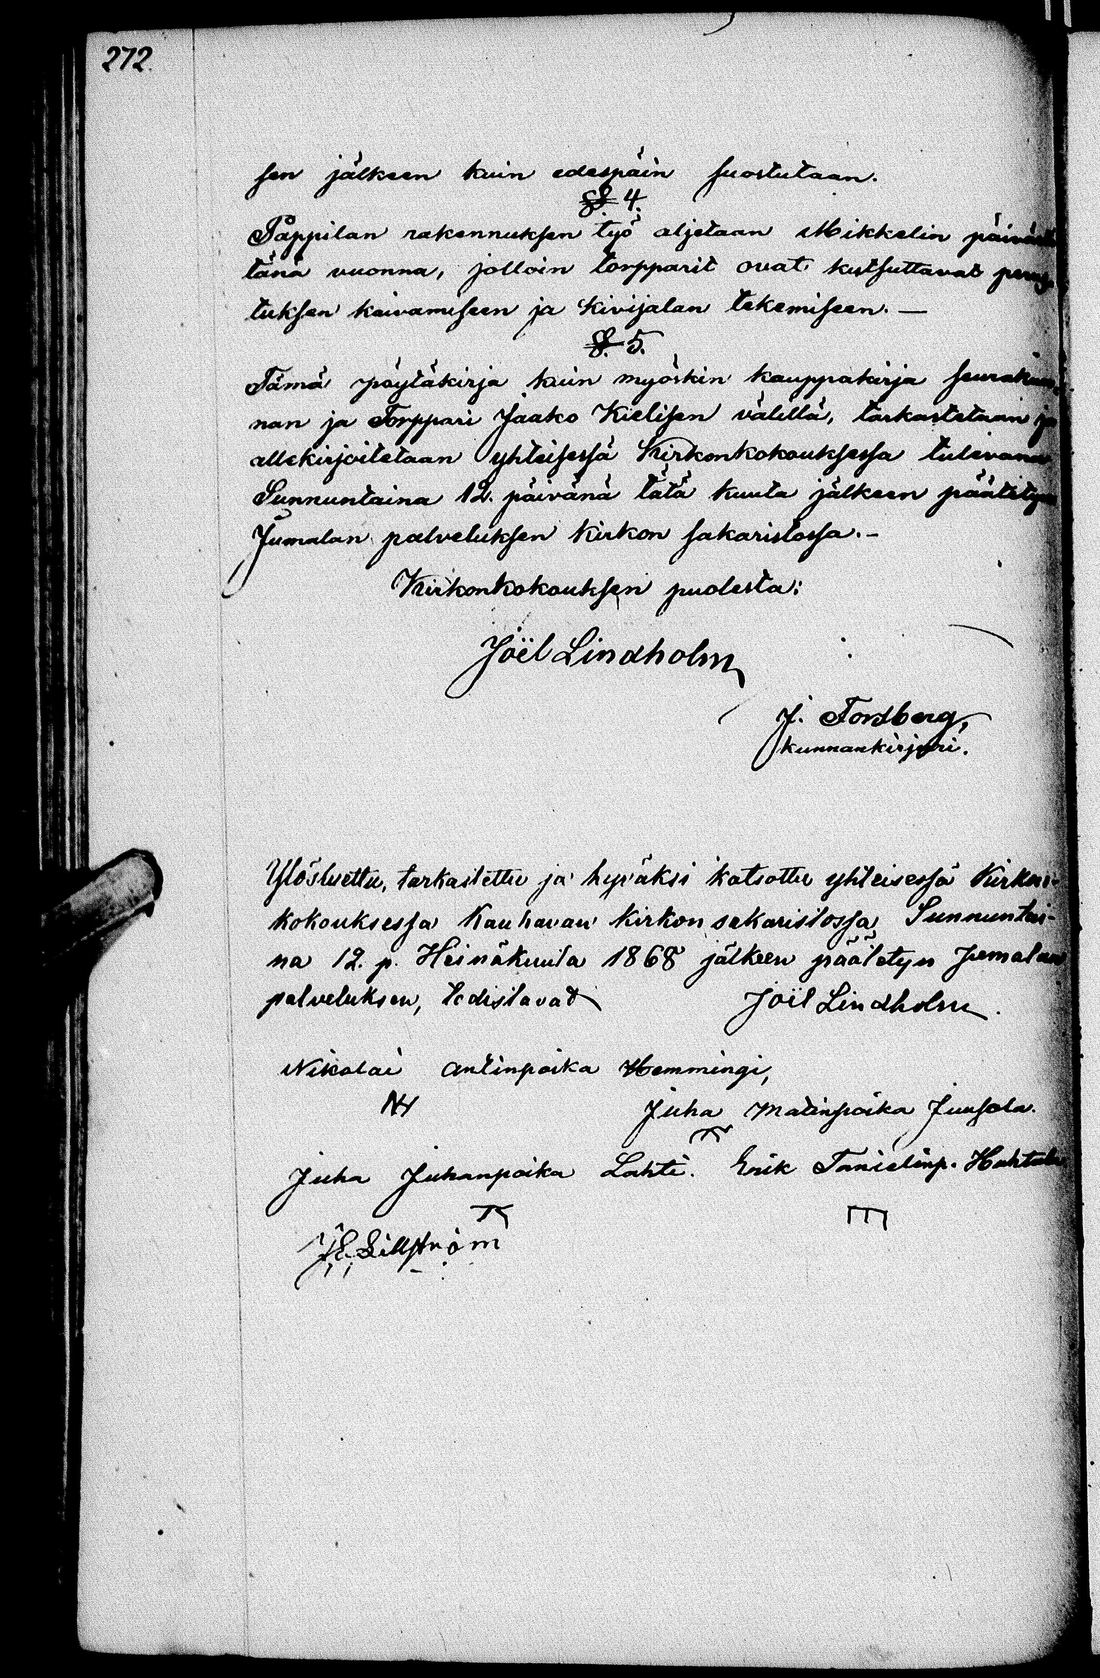 272.
sen jälkeen kuin edespäin suostutaan.
§ 4.
Pappilan rakennuksen työ aljetaan Mikkelin
tänä vuonna, jolloin torpparit ovat kutsuttavat
tuksen kaivamiseen ja kivijalan tekemiseen. —
§. 5.
Tämä pöytäkirja kuin myöskin kauppakirja seurakun-
nan ja Torppari Jaako Kielisen välillä, tarkastetaan ja
allekirjoitetaan yhteisessä Kirkonkokouksessa tulevana
Sunnuntaina 12. päivänä tätä kuuta jälkeen päätetyn
Jumalan palveluksen Kirkon sakaristossa. –
Kirkonkokouksen puolesta:
Joël Lindholm
J. Forsberg,
kunnankirjuri.
Ylösluettu, tarkastettu ja hyväksi katsottu yhteisessä Kirkon-
kokouksessa Kauhavan kirkon sakaristossa Sunnuntai-
na 12. p. Heinäkuuta 1868 jälkeen päätetyn Jumalan
palveluksen, todistavat Joël Lindholm.
Nikolai Antinpoika Hemmingi,
Juha Matinpoika Juusola.
Juha Juhanpoika Lahti. Erik Tanielinp. Huhtala